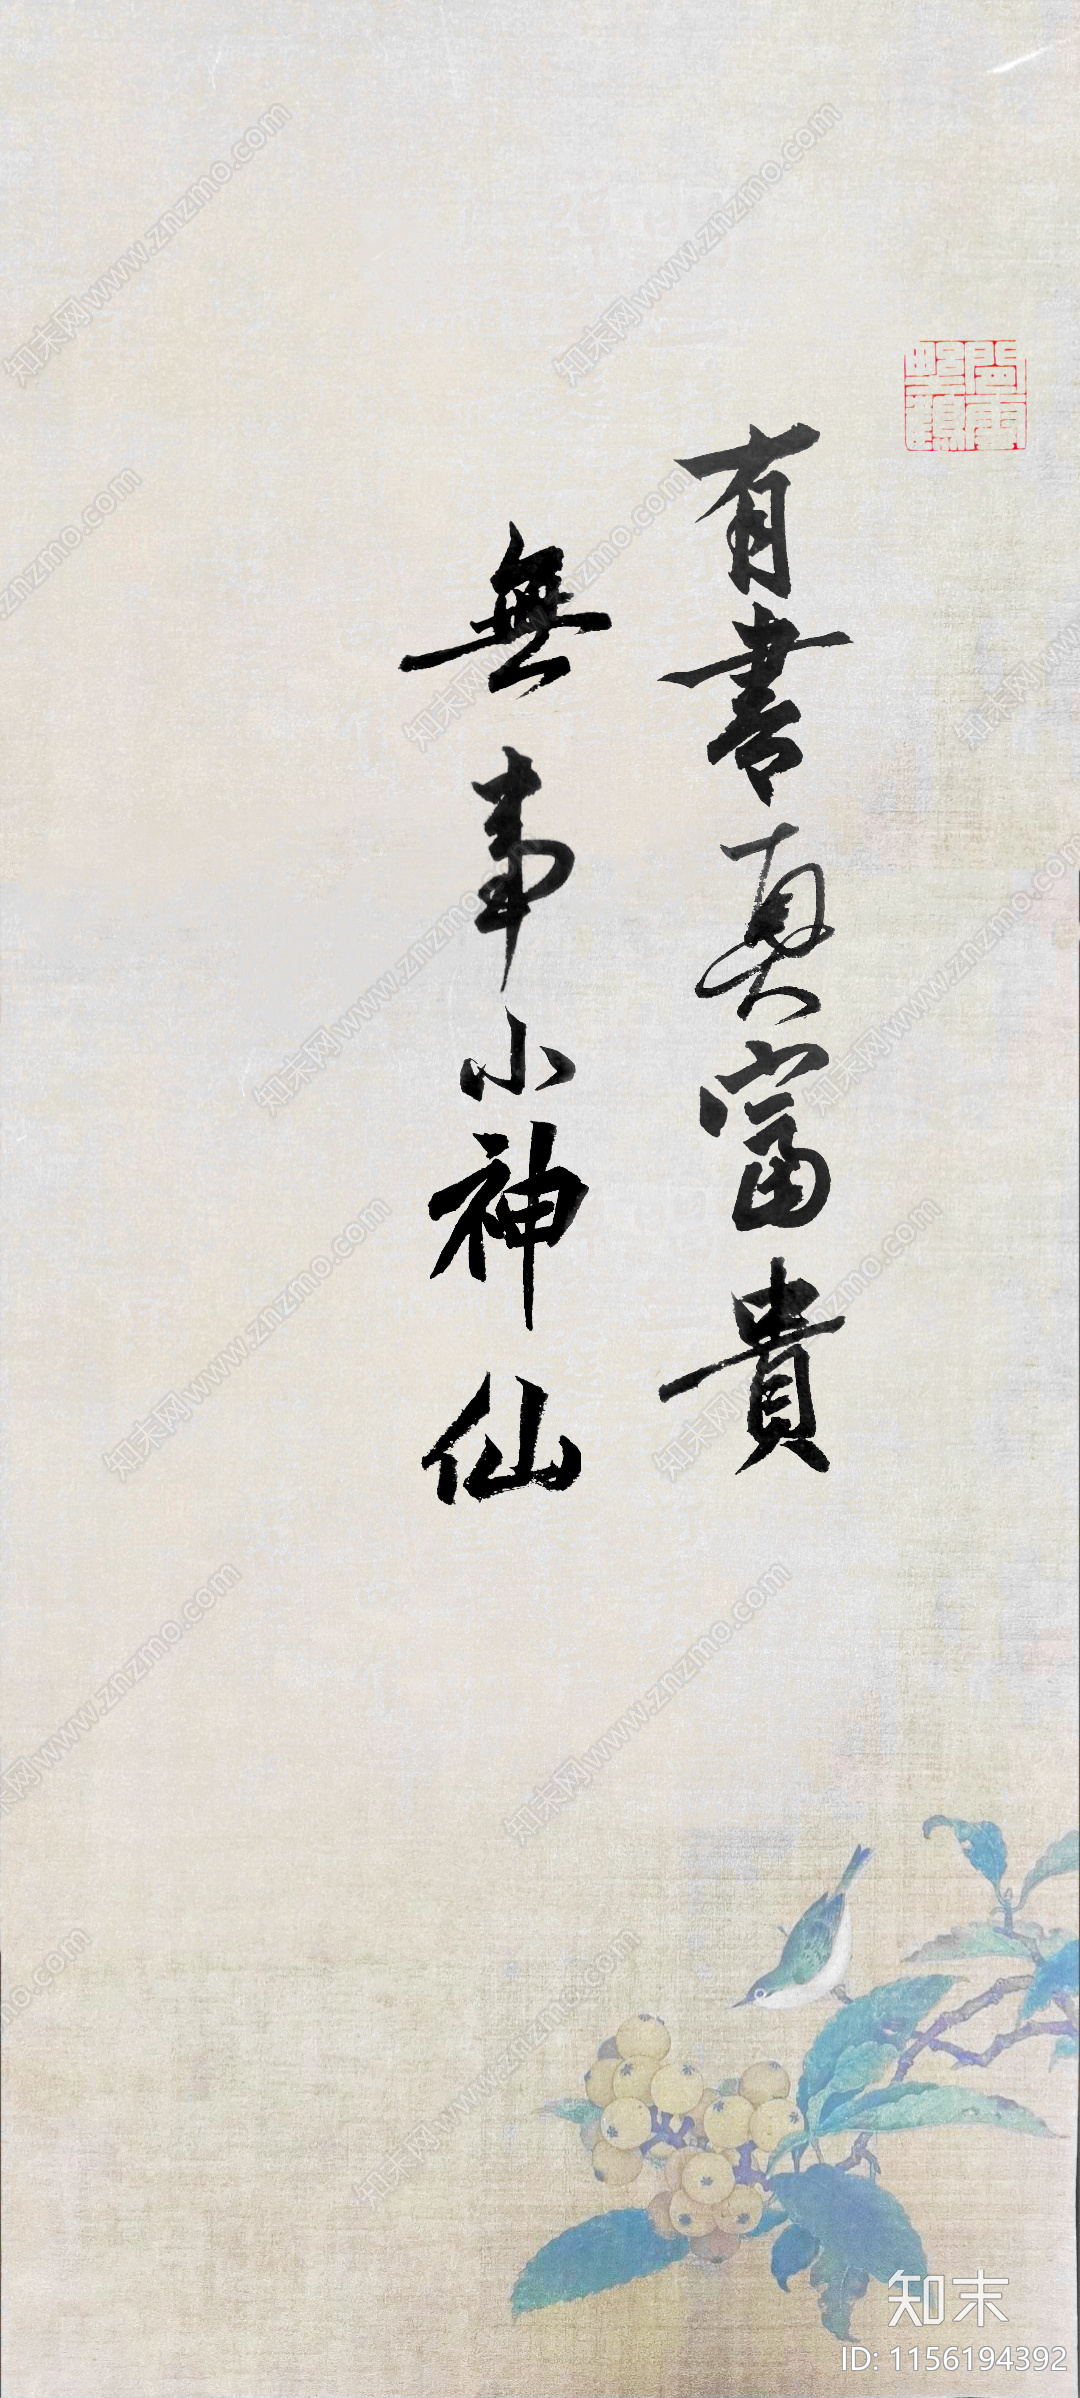 有書真富貴
無事小神仙
閒雲野鶴
知末网www.znzmo.com
知末
ID: 1156194392